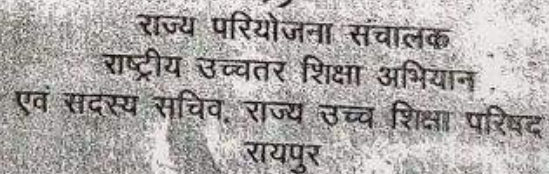 राज्य परियोजना संचालक
राष्ट्रीय उच्चतर शिक्षा अभियान
एवं सदस्य सचिव, राज्य उच्च शिक्षा परिषद
रायपुर